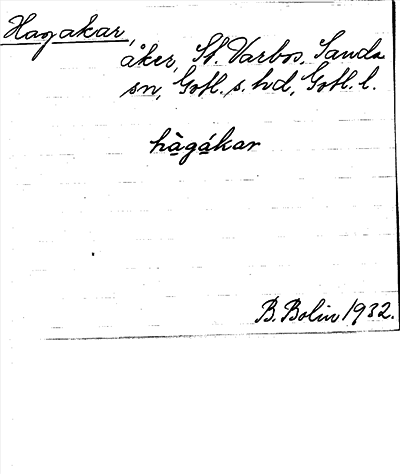 Hagakar,
åker, St. Varbos, Sanda
sn, Gotl. s. hd, Gotl. l.
hàgákar
B. Bolin 1932.